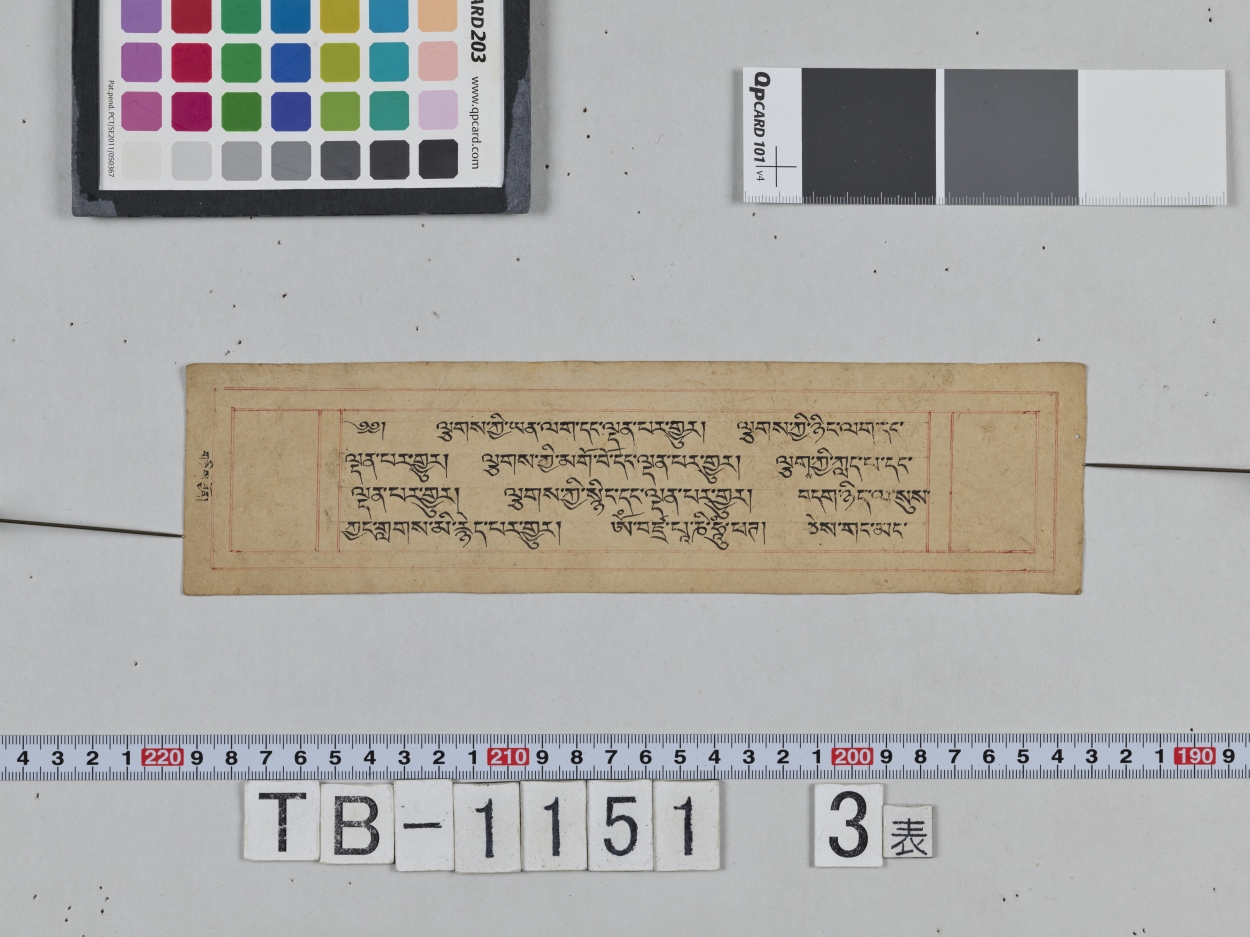 CARD 203 www.qpcard.com
Pat.pend. PCT/SE2011/050367
QPCARD 101 v4
༄༅། ལྕགས་ཀྱི་ཡན་ལག་དང་ལྡན་པར་གྱུར། ལྕགས་ཀྱི་ཉིང་ལག་དང་
ལྡན་པར་གྱུར། ལྕགས་ཀྱི་མགོ་བོ་དང་ལྡན་པར་གྱུར། ལྕགས་ཀྱི་ཀླད་པ་དང་
ལྡན་པར་གྱུར། ལྕགས་ཀྱི་སྙིང་དང་ལྡན་པར་གྱུར། བདག་ཉིད་ལ་སུས་
ཀྱང་གླགས་མི་རྙེད་པར་གྱུར། ཨོཾ་བཛྲ་པཱ་ཎི་ཧཱུྃ་ཕཊ། ཅེས་གང་ཨང་
གཉིས་
4 3 2 1 220 9 8 7 6 5 4 3 2 1 210 9 8 7 6 5 4 3 2 1 200 9 8 7 6 5 4 3 2 1 190 9
TB-1151 3 表